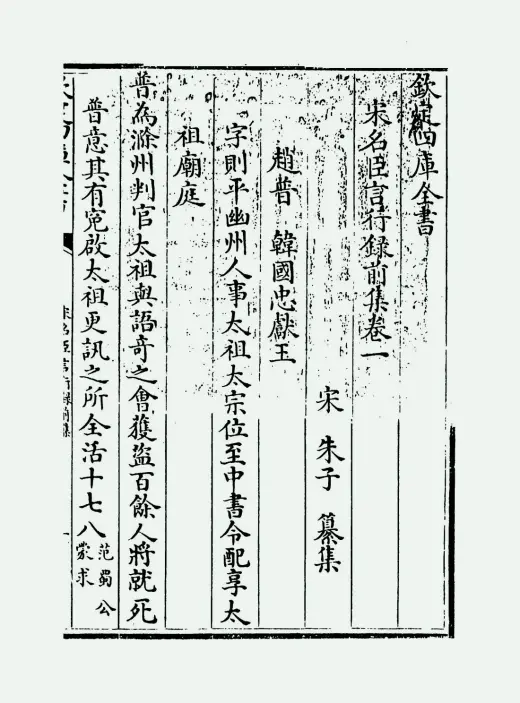 欽定四庫全書
宋名臣言行録前集卷一
宋 朱子 纂集
趙普 韓國忠獻王
字則平幽州人事太祖太宗位至中書令配享太
祖廟庭
普為滁州判官太祖與語奇之會獲盜百餘人將就死
普意其有寃啟太祖更訊之所全活十七八范蜀公
蒙求
宋名臣言行録前集
一